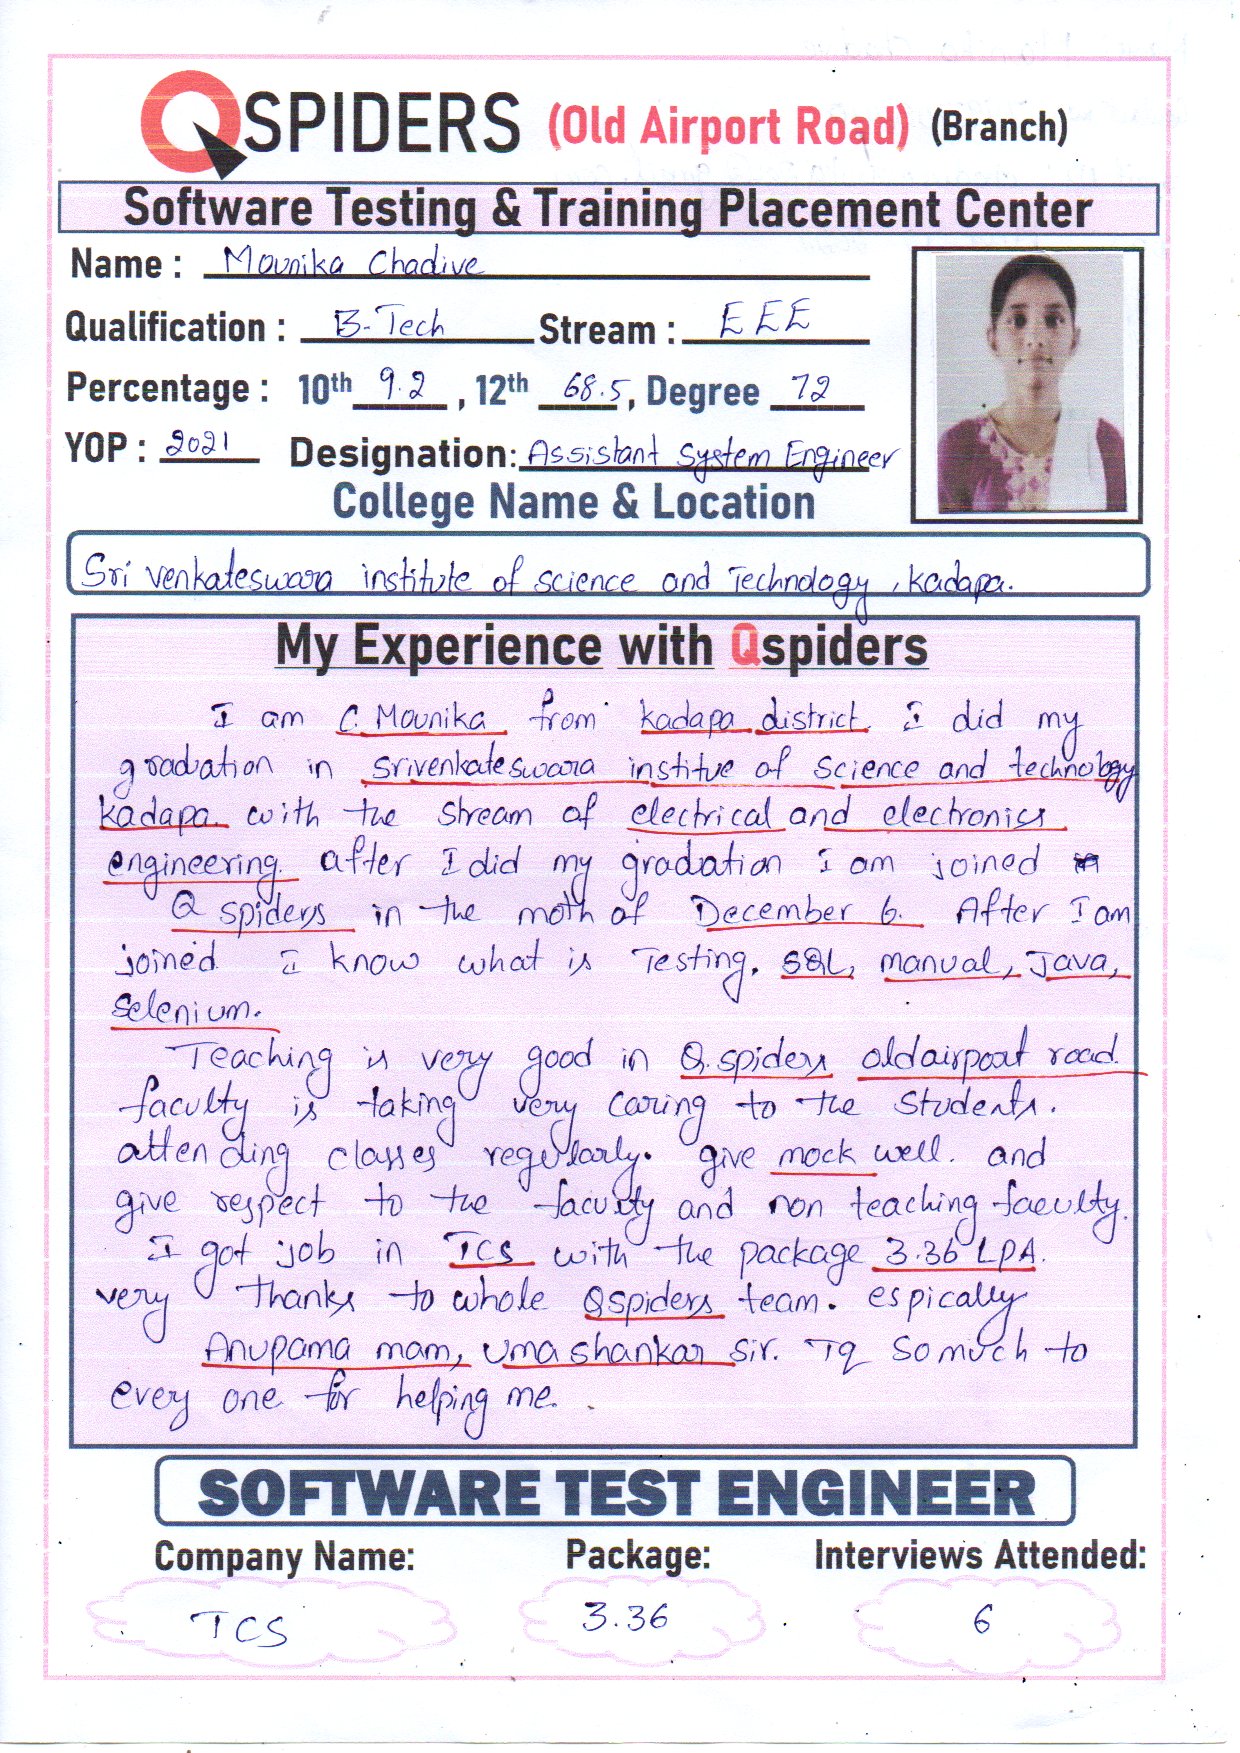 QSPIDERS (Old Airport Road) (Branch)
Software Testing & Training Placement Center
Name : Mounika Chadive
Qualification : B-Tech Stream : EEE
Percentage : 10th 9.2 , 12th 68.5, Degree 72
YOP : 2021 Designation: Assistant System Engineer
College Name & Location
Sri venkateswara institute of science and Technology , kadapa.
My Experience with Qspiders
I am C. Mounika from kadapa district. I did my
graduation in srivenkateswara institue of science and technology
kadapa. with the stream of electrical and electronics
engineering. after I did my gradation I am joined
Q spiders in the moth of December 6. After I am
joined I know what is Testing. SQL, manual, Java,
selenium.
Teaching is very good in Q.spiders oldairpoat road.
faculty is taking very caring to the students.
attending classes regularly. give mock well. and
give respect to the faculty and non teaching faculty.
I got job in TCS with the package 3.36 LPA.
very thanks to whole Qspiders team. espically
Anupama mam, uma shankar sir. Tq so much to
every one for helping me.
SOFTWARE TEST ENGINEER
Company Name: Package: Interviews Attended:
TCS 3.36 6